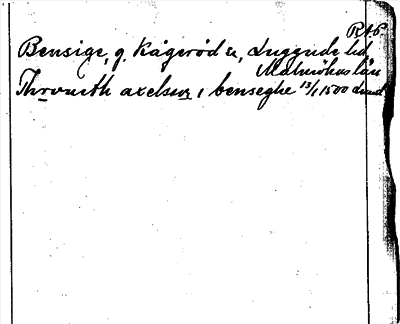 RAP
Bensige, g. Kågeröd sn, Luggude hd
Malmöhus län
Throneth axelsøn i benseghe 13/1 1500